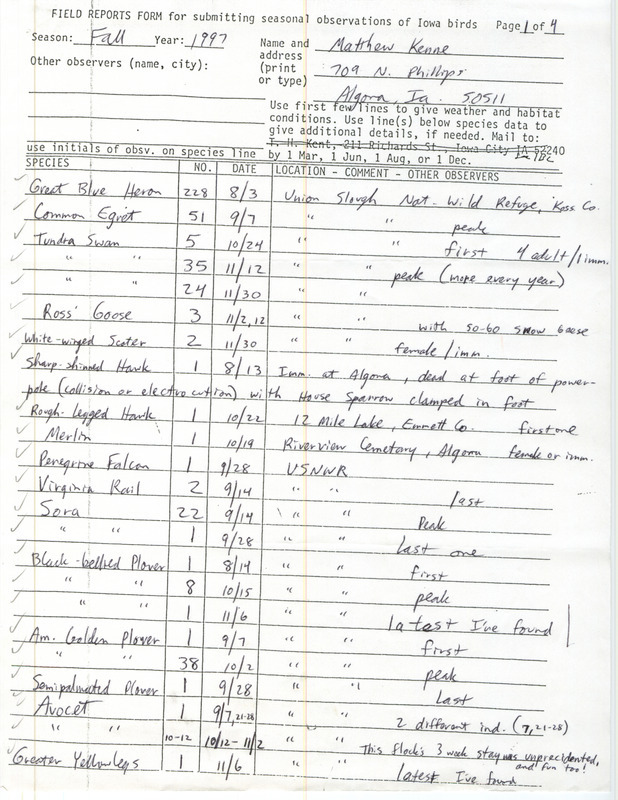 FIELD REPORTS FORM for submitting seasonal observations of Iowa birds Page 1 of 4
Season: Fall Year: 1997
Name and address (print or type) Matthew Kenne
709 N. Phillips
Algona, Ia. 50511
Other observers (name, city):
Use first few lines to give weather and habitat
conditions. Use line(s) below species data to
give additional details, if needed. Mail to:
T. H. Kent, 211 Richards St., Iowa City IA 52240
by 1 Mar, 1 Jun, 1 Aug, or 1 Dec.
use initials of obsv. on species line
SPECIES NO. DATE LOCATION - COMMENT - OTHER OBSERVERS
Great Blue Heron 228 8/3 Union Slough Nat. Wild Refuge, Koss. Co.
Common Egret 51 9/7 " " peak
Tundra Swan 5 10/24 " " first 4 adult/1 imm.
" " 35 11/12 " " peak (more every year)
" " 24 11/30 " "
Ross' Goose 3 11/2,12 " " with 50-60 snow goose
White-winged Scoter 2 11/30 " " female/imm.
Sharp-shinned Hawk 1 8/13 Imm. at Algona, dead at foot of power-
pole (collision or electrocution) with House Sparrow clamped in foot
Rough-legged Hawk 1 10/22 12 Mile Lake, Emmett Co. first one
Merlin 1 10/19 Riverview Cemetary, Algona female or imm.
Peregrine Falcon 1 9/28 USNWR
Virginia Rail 2 9/14 " " last
Sora 22 9/14 " " Peak
" " 1 9/28 " " last one
Black-bellied Plover 1 8/14 " " first
" " 8 10/15 " " peak
" " 1 11/6 " " latest I've found
Am. Golden Plover 1 9/7 " " first
" " 38 10/2 " " peak
Semipalmated Plover 1 9/28 " " Last
Avocet 1 9/7,21-28 " " 2 different ind. (7,21-28)
" " 10-12 10/12-11/2 " " This flock's 3 week stay was unprecidented, and fun too!
Greater Yellowlegs 1 11/6 " " latest I've found